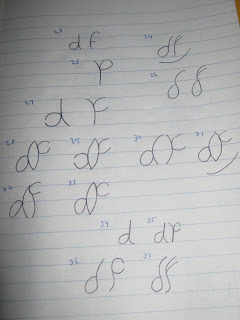 23 df 24 df
25 p 26 δδ
27 d f
28 df 29 df 30 df 31 df
32 df 33 df
34 d 35 df
36 df 37 df